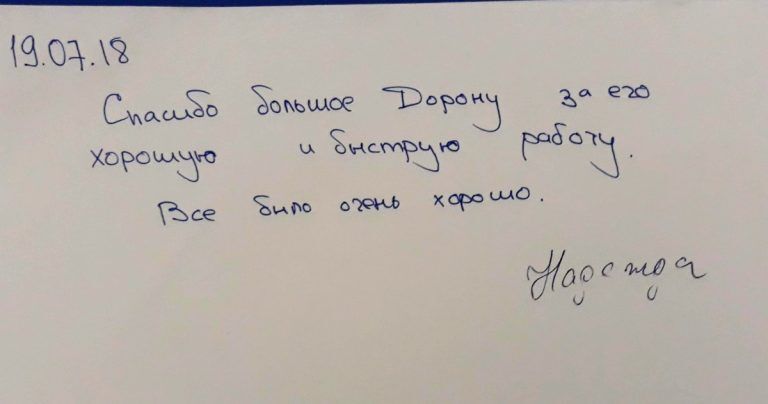 19.07.18
Спасибо большое Дорону за его
хорошую и быструю работу.
Все было очень хорошо.
Надежда